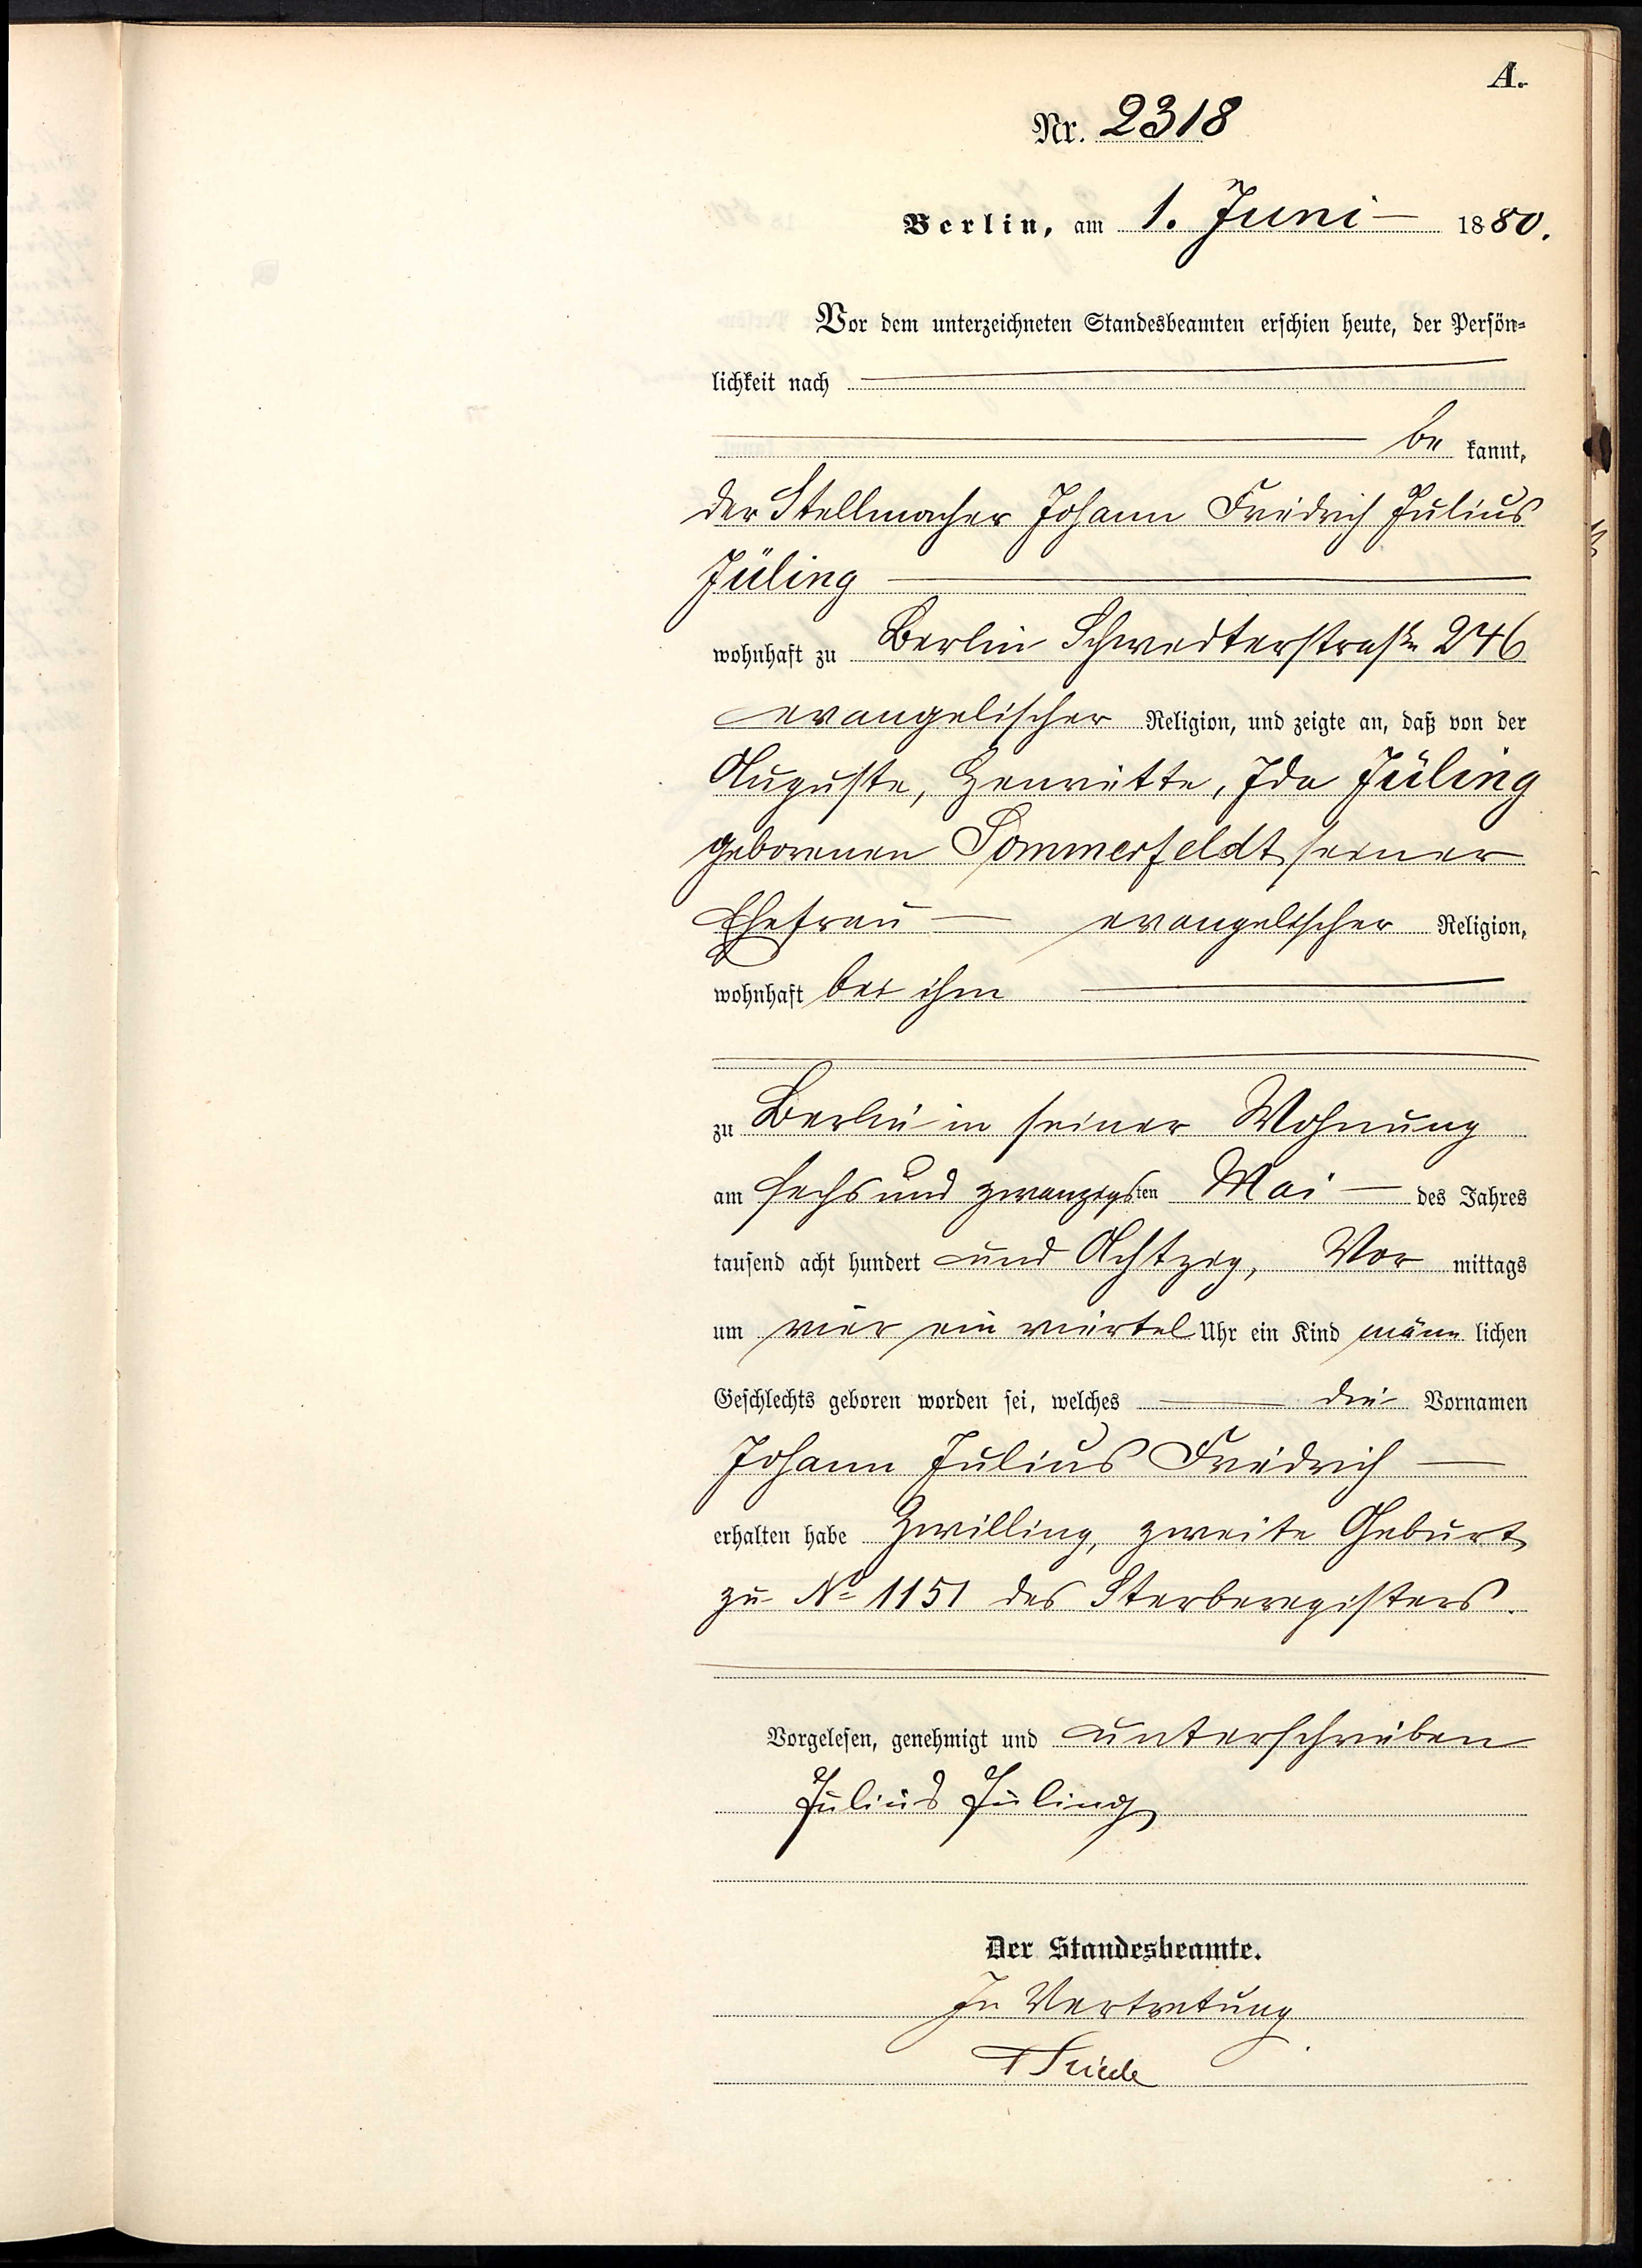 A.
Nr. 2318
Berlin, am 1. Juni — 1880.
Vor dem unterzeichneten Standesbeamten erschien heute, der Persön-
lichkeit nach —
— be kannt,
der Stellmacher Johann Friedrich Julius
Jüling —
wohnhaft zu Berlin Schwedterstraße 246
evangelischer Religion, und zeigte an, daß von der
Auguste, Henriette, Ida Jüling
geborenen Sommerfeldt, seiner
Ehefrau — evangelischer Religion,
wohnhaft bei ihm —
zu Berlin in seiner Wohnung
am sechs und zwanzigsten Mai — des Jahres
tausend acht hundert und Achtzig, Vor mittags
um vier ein viertel Uhr ein Kind männ lichen
Geschlechts geboren worden sei, welches — die Vornamen
Johann Julius Friedrich —
erhalten habe Zwilling, zweite Geburt,
zu No 1151 des Sterberegisters.
Vorgelesen, genehmigt und unterschrieben
Julius Jüling
Der Standesbeamte.
In Vertretung